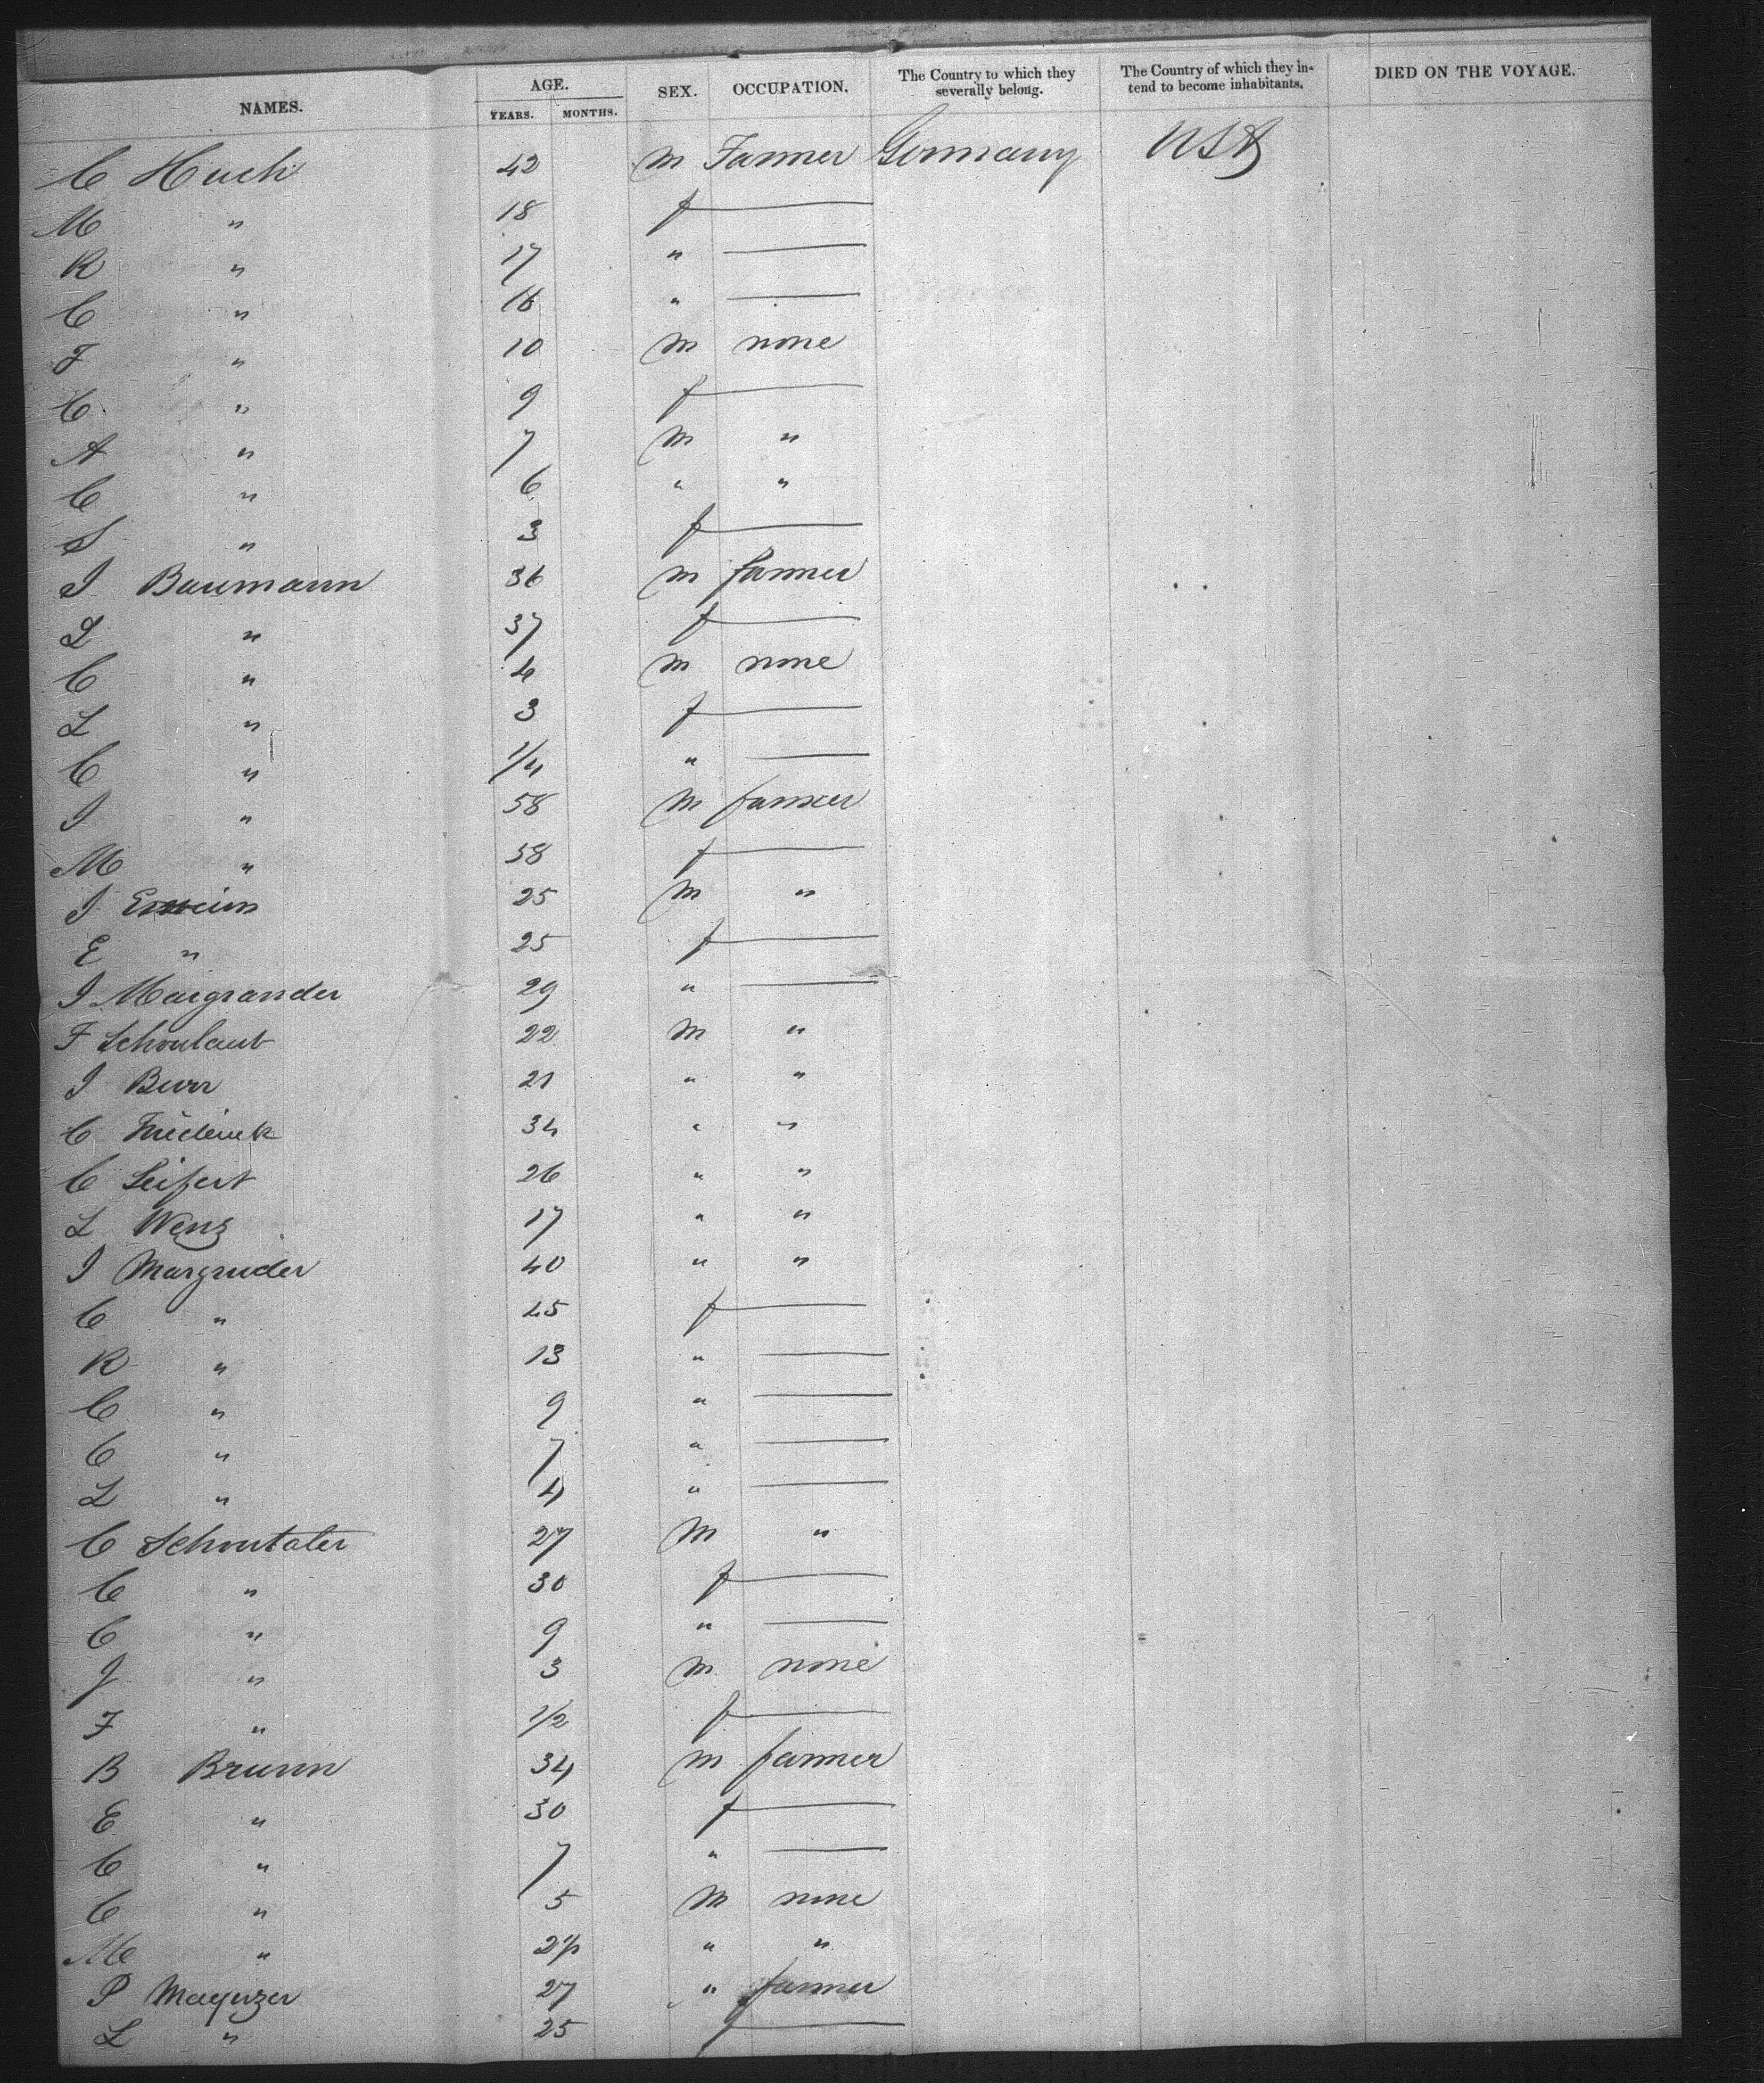 NAMES. AGE. SEX. OCCUPATION. The Country to which they severally belong. The Country of which they intend to become inhabitants. DIED ON THE VOYAGE.
YEARS. MONTHS.
C Huch 42 m Farmer Germany USA
M " 18 f —
R " 17 " —
C " 16 " —
F " 10 m none
C " 9 f —
A " 7 m "
C " 6 " "
S " 3 f —
J Baumann 36 m farmer
L " 37 f —
C " 4 m none
L " 3 f —
C " 1/4 " —
J " 58 m farmer
M " 58 f —
J 25 m "
E " 25 f —
J Margrander 29 " —
F Schonlaub 22 m "
J Burr 21 " "
C Friederick 34 " "
C Seifert 26 " "
L Wenz 17 " "
J Margruder 40 " "
C " 45 f —
R " 13 " —
C " 9 " —
C " 7 " —
L " 4 " —
C Schontaler 27 m "
C " 30 f —
C " 9 " —
J " 3 m none
F " 1/2 f —
B Brunn 34 m farmer
E " 30 f —
C " 7 " —
C " 5 m none
M " " "
P Mayerzer 27 " farmer
L " 25 f —